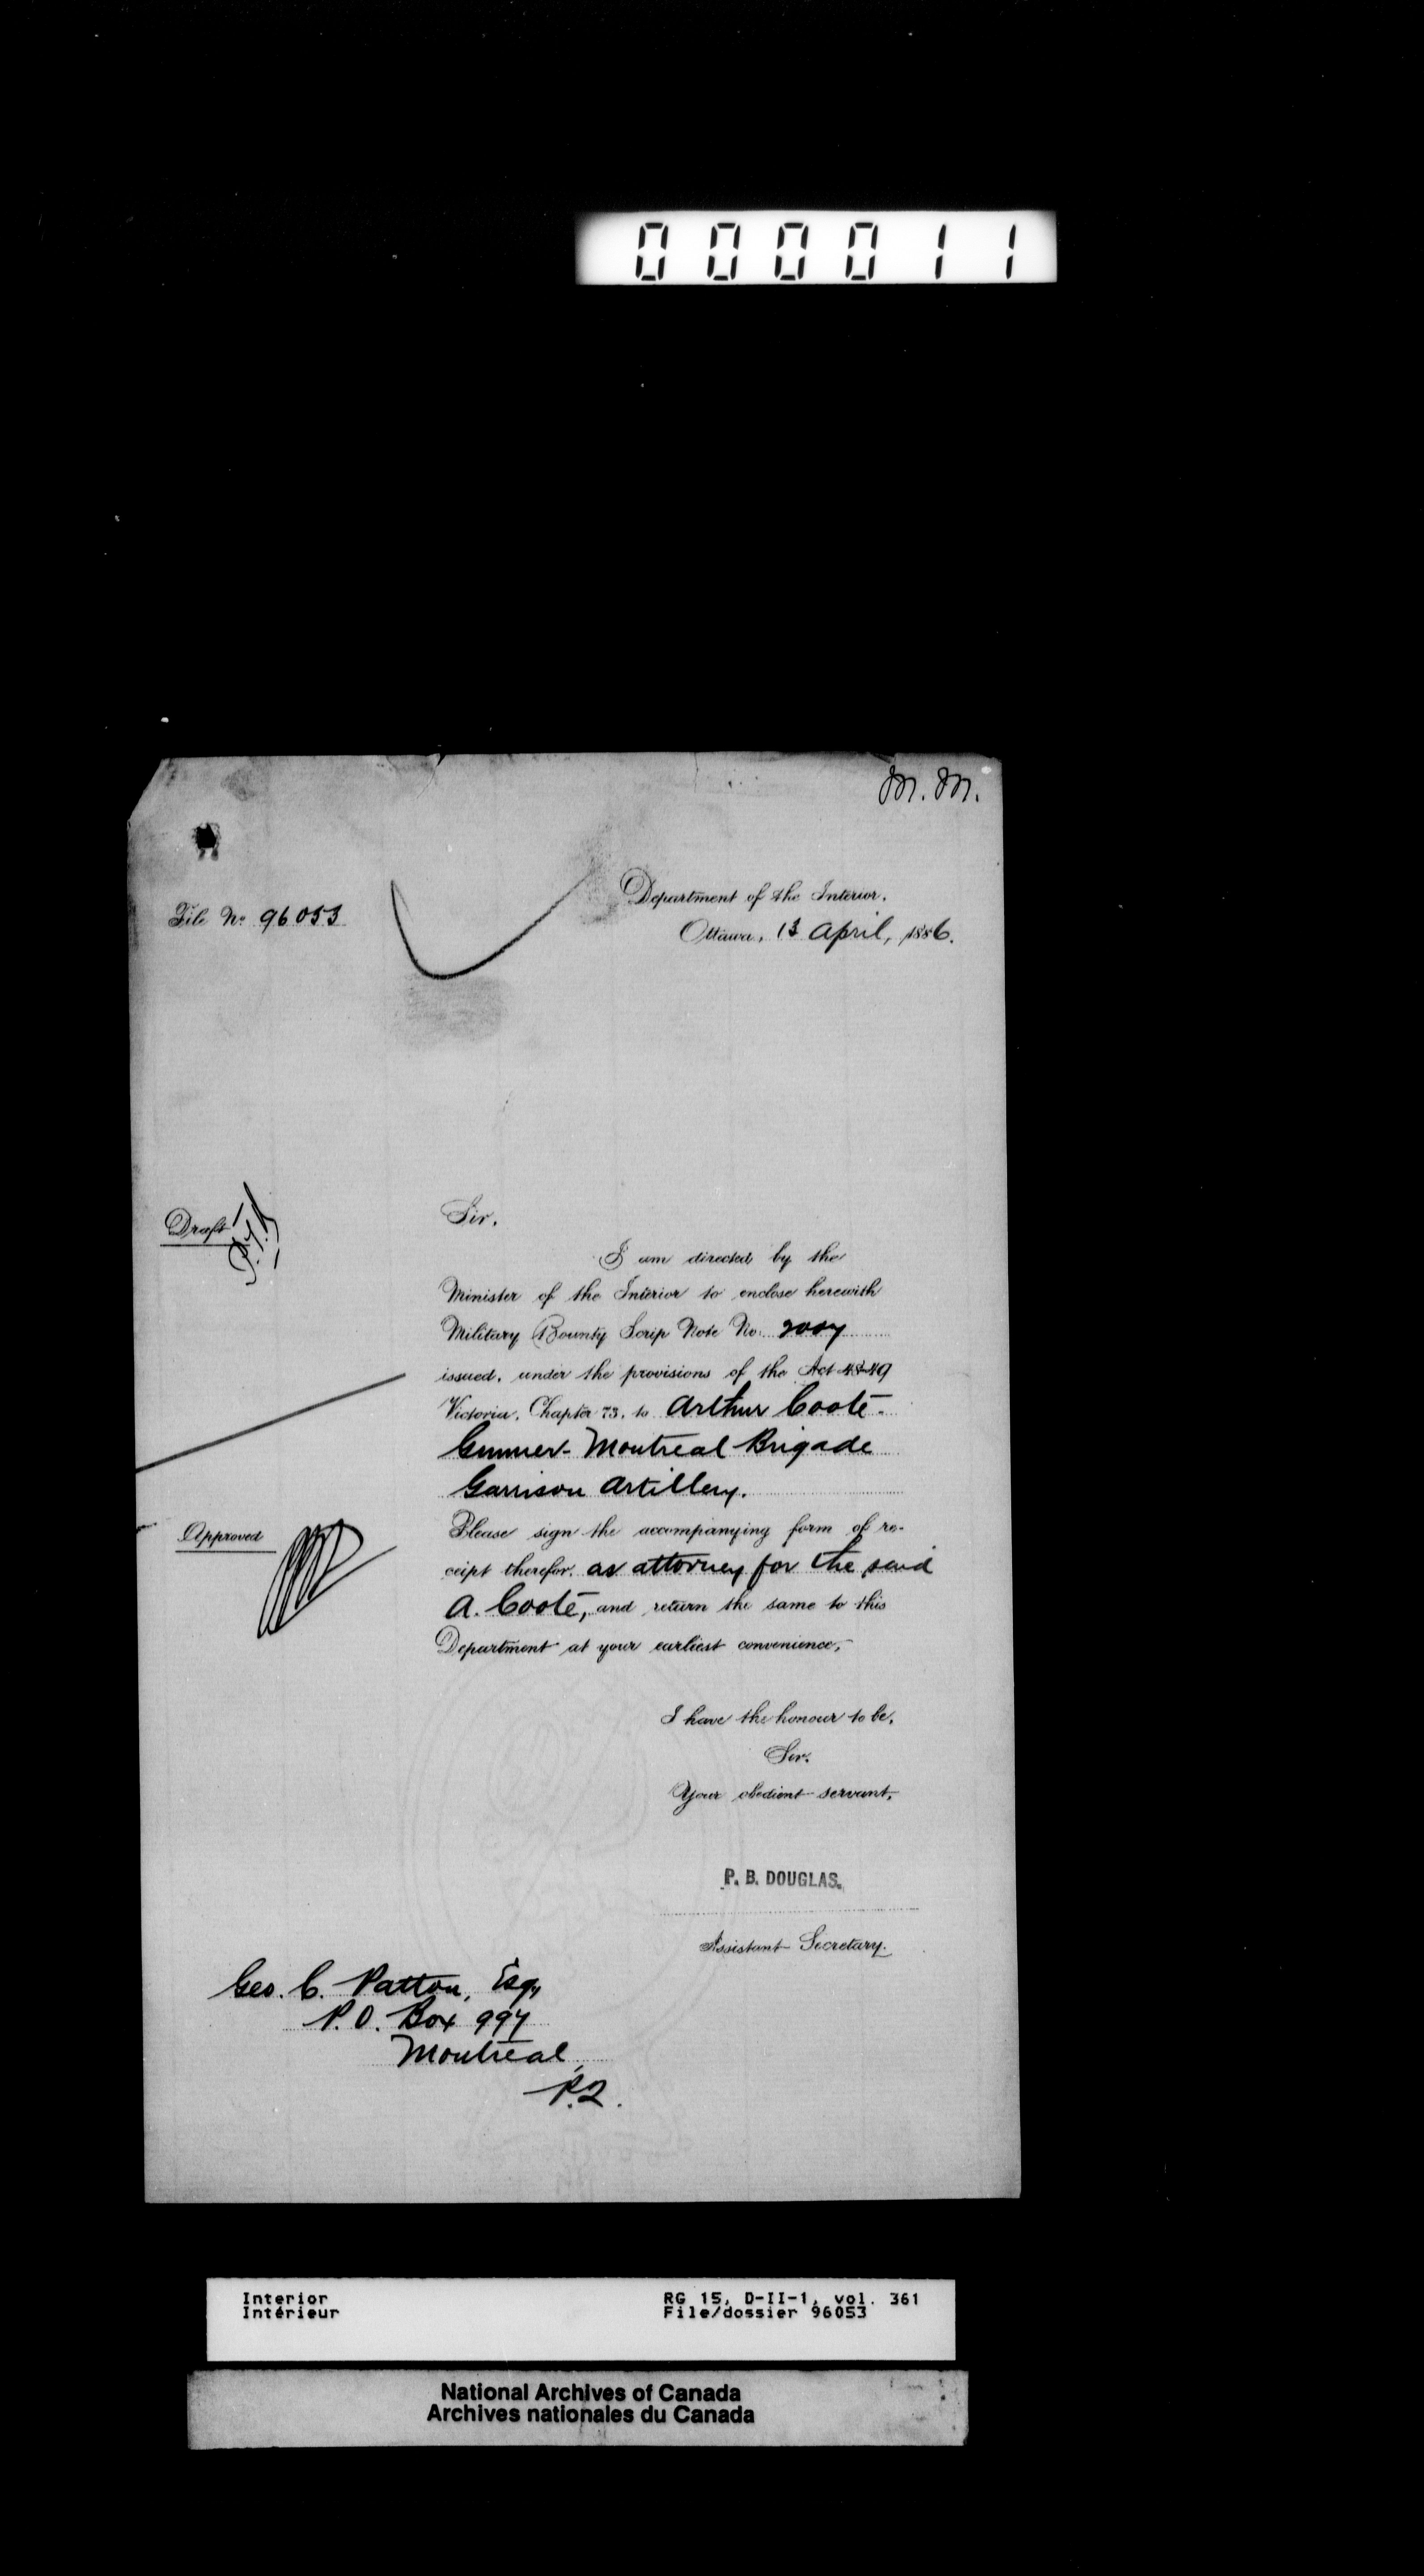 000011
M. M.
Department of the Interior,
File No. 96053
Ottawa, 13 April, 1886.
Draft
Sir,
I am directed by the
Minister of the Interior to enclose herewith
Military Bounty Scrip Note No.
issued, under the provisions of the Act 48-49
Victoria, Chapter 73, to Arthur Cooté.
Gunner - Montreal Brigade
Garrison Artillery.
Approved
Please sign the accompanying form of re-
ceipt therefor, as attorney for the said
A. Cooté, and return the same to this
Department at your earliest convenience,
I have the honour to be,
Sir,
Your obedient servant,
P. B. DOUGLAS.
Assistant Secretary.
Geo. C. Patton, Esq,
P.O. Box 997
Montreal,
P.Q.
Interior RG 15, D-II-1, vol. 361
Intérieur File/dossier 96053
National Archives of Canada
Archives nationales du Canada